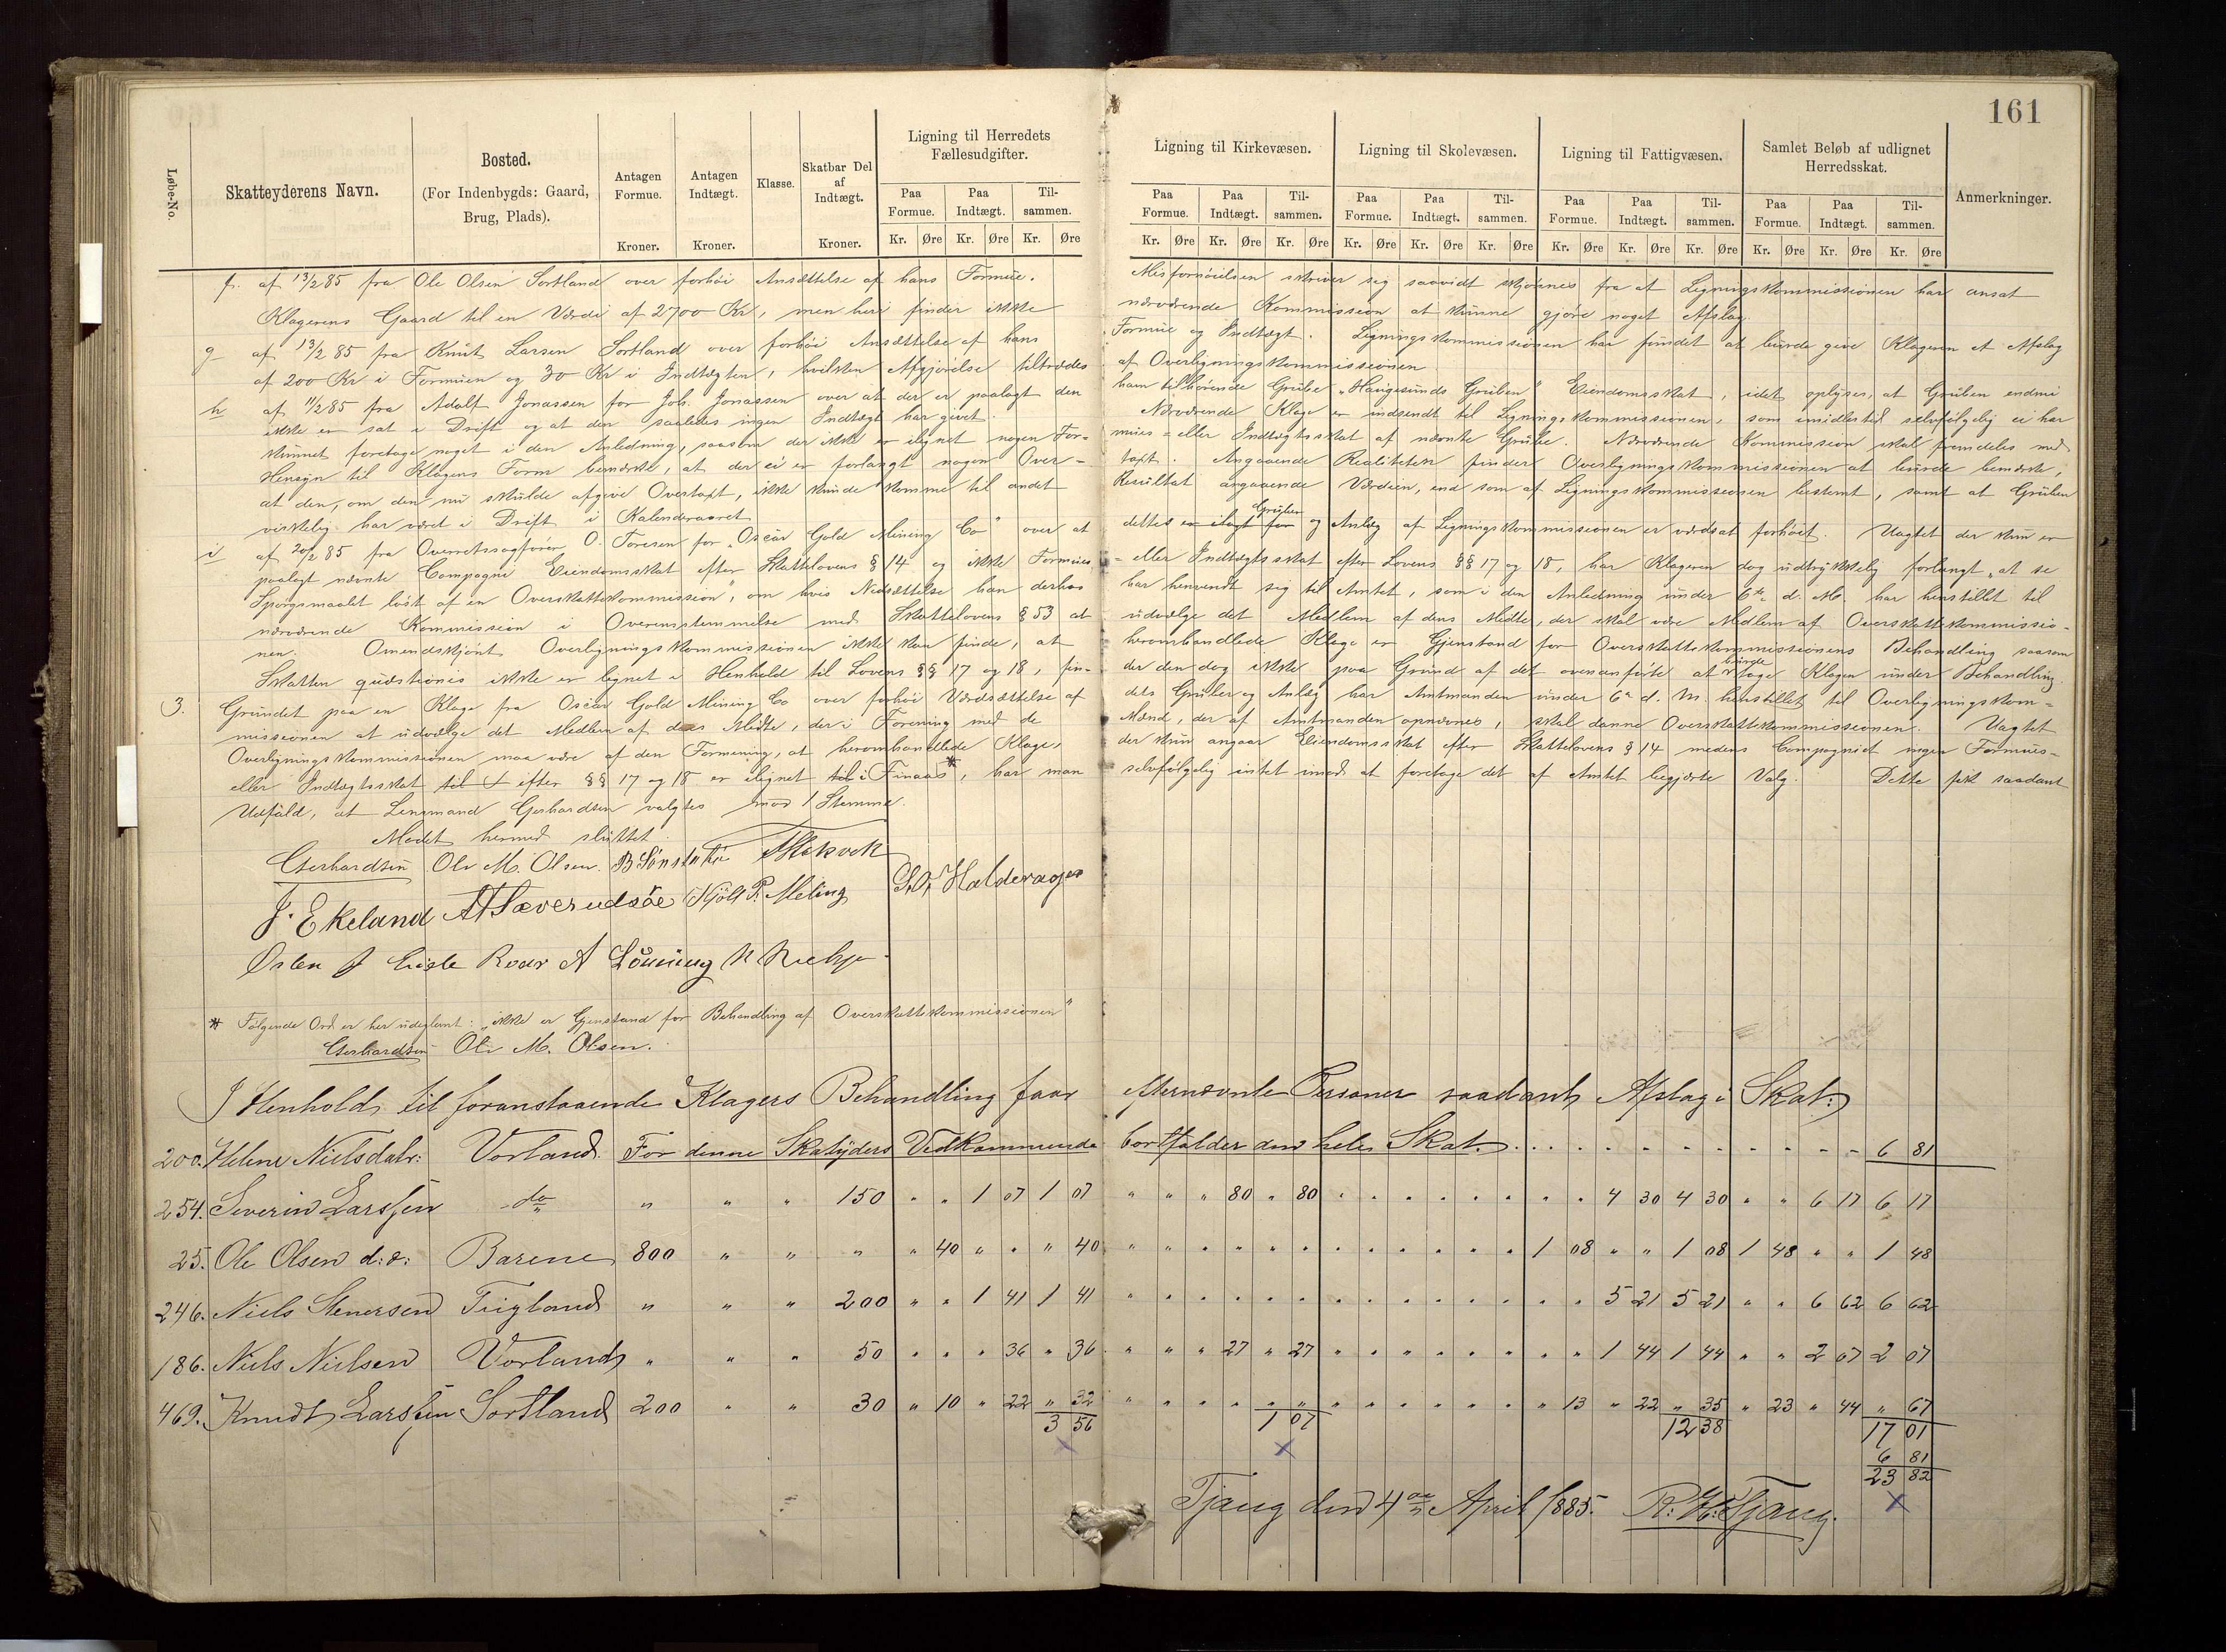 161
Løbe-No.
Skatteyderens Navn.
Bosted.
(For Indenbygds: Gaard, Brug, Plads).
Antagen Formue.
Kroner.
Antagen Indtægt.
Kroner.
Klasse.
Skatbar Del af Indtægt.
Kroner.
Ligning til Herredets Fællesudgifter.
Paa Formue. Paa Indtægt. Til- sammen.
Kr. Øre Kr. Øre Kr. Øre
Ligning til Kirkevæsen.
Paa Formue. Paa Indtægt. Til- sammen.
Kr. Øre Kr. Øre Kr. Øre
Ligning til Skolevæsen.
Paa Formue. Paa Indtægt. Til- sammen.
Kr. Øre Kr. Øre Kr. Øre
Ligning til Fattigvæsen.
Paa Formue. Paa Indtægt. Til- sammen.
Kr. Øre Kr. Øre Kr. Øre
Samlet Beløb af udlignet Herredsskat.
Paa Formue. Paa Indtægt. Til- sammen.
Kr. Øre Kr. Øre Kr. Øre
Anmerkninger.
f. af 13/2 85 fra Ole Olsen Sortland over forhøi Ansættelse af hans Formue. Misfornøielsen skriver sig saavidt skjønnes fra at Ligningskommissionen har ansat
Klagerens Gaard til en Værdi af 2700 Kr, men heri finder ikke nærværende Kommission at kunne gjøre noget Afslag.
g af 13/2 85 fra Knut Larsen Sortland over forhøi Ansættelse af hans Formue og Indtægt. Ligningskommissionen har fundet at burde give Klageren et Afslag
af 200 Kr i Formuen og 30 Kr i Indtægten, hvilken Afgjørelse tiltrædes af Overligningskommissionen
h af 11/2 85 fra Adolf Jonassen for Joh. Jonassen over at der er paalagt den ham tilhørende Grube "Haugesunds Gruben" Eiendomsskat, idet oplyses, at Gruben endnu
ikke er sat i Drift og at den saaledes ingen Indtægt har givet. Nærværende Klage er indsendt til Ligningskommissionen, som imidlertid selvfølgelig ei har
kunnet foretage noget i den Anledning, saasom der ikke er ilignet nogen For- mues- eller Indtægtsskat af nævnte Grube. Nærværende Kommission skal fremdeles med
Hensyn til Klagens Form bemærke, at der ei er forlangt nogen Over- taxt. Angaaende Realiteten finder Overligningskommissionen at burde bemærke,
at den, om den nu skulde afgive Overtaxt, ikke kunde komme til andet Resultat angaaende Værdien, end som af Ligningskommissionen bestemt, samt at Gruben
virkelig har været i Drift i Kalenderaaret
i af 20/2 85 fra Overretssagfører O. Foresen for "Oscar Gold Mining Co" over at dettes Gruber og Anlæg af Ligningskommissionen er værdsat forhøit. Uagtet der kun er
paalagt nævnte Compagni Eiendomsskat efter Skattelovens § 14 og ikke Formues- eller Indtægtsskat efter Lovens §§ 17 og 18, har Klageren dog udtrykkelig forlangt "at se
Spørgsmaalet løst af en Overskattekommission", om hvis Nedsættelse han derhos har henvendt sig til Amtet, som i den Anledning under 6te d. M. har henstillet til
nærværende Kommission i Overensstemmelse med Skattelovens § 53 at udvælge det Medlem af dens Midte, der skal være Medlem af Overskattekommissio-
nen. Omendskjønt Overligningskommissionen ikke kan finde, at heromhandlede Klage er Gjenstand for Overskattekommissionens Behandling saasom
Skatten quæstionis ikke er lignet i Henhold til Lovens §§ 17 og 18, fin- der den dog ikke paa Grund af det ovenanførte at burde tage Klagen under Behandling.
3. Grundet paa en Klage fra Oscar Gold Mining Co over forhøi Værdsættelse af dets Gruber og Anlæg har Amtmanden under 6te d. M. henstillet til Overligningskom-
missionen at udvælge det Medlem af dens Midte, der i Forening med de Mænd, der af Amtmanden opnævnes, skal danne Overskattekommissionen. Uagtet
Overligningskommissionen maa være af den Formening, at heromhandlede Klage, der kun angaar Eiendomsskat efter Skattelovens § 14 medens Compagniet ingen Formues-
eller Indtægtsskat efter §§ 17 og 18 er ilignet i Finaas *, har man selvfølgelig intet imod at foretage det af Amtet begjærte Valg. Dette fik saadant
Udfald, at Lensmand Gerhardsen valgtes mod 1 Stemme.
Mødet hermed sluttet.
Gerhardsen Ole M. Olsen.
J. Ekeland Kjøll P. Meling
A Lønning
* Følgende Ord er her udeglemt: "ikke er Gjenstand for Behandling af Overskattekommissionen"
Gerhardsen Ole M. Olsen.
I Henhold til foranstaaende Klagers Behandling faar efternævnte Personer saadant Afslag i Skat:
200. Helene Nielsdatr: Vorland. For denne Skatyders Vedkommende bortfalder den hele Skat. 6 81
254. Severin Larssen do " " " 150 " " 1 07 1 07 " " " 80 " 80 " " " " " " " " 4 30 4 30 " " 6 17 6 17
25. Ole Olsen d: æ: Barene 800 " " " " 40 " " " 40 " " " " " " " " " " " " 1 08 " " 1 08 1 48 " " 1 48
246. Niels Stenersen Tugland " " " 200 " " 1 41 1 41 " " " " " " " " " " " " " " 5 21 5 21 " " 6 62 6 62
186. Niels Nielsen Vorland " " " 50 " " " 36 " 36 " " " 27 " 27 " " " " " " " " 1 44 1 44 " " 2 07 2 07
469. Knudt Larssen Sortland 200 " " 30 " 10 " 22 " 32 " " " " " " " " " " " " " 13 " 22 " 35 " 23 " 44 " 67
3 56 1 07 12 38 17 01
6 81
23 82
Tjaug den 4de April 1885. R. H. Tjaug.